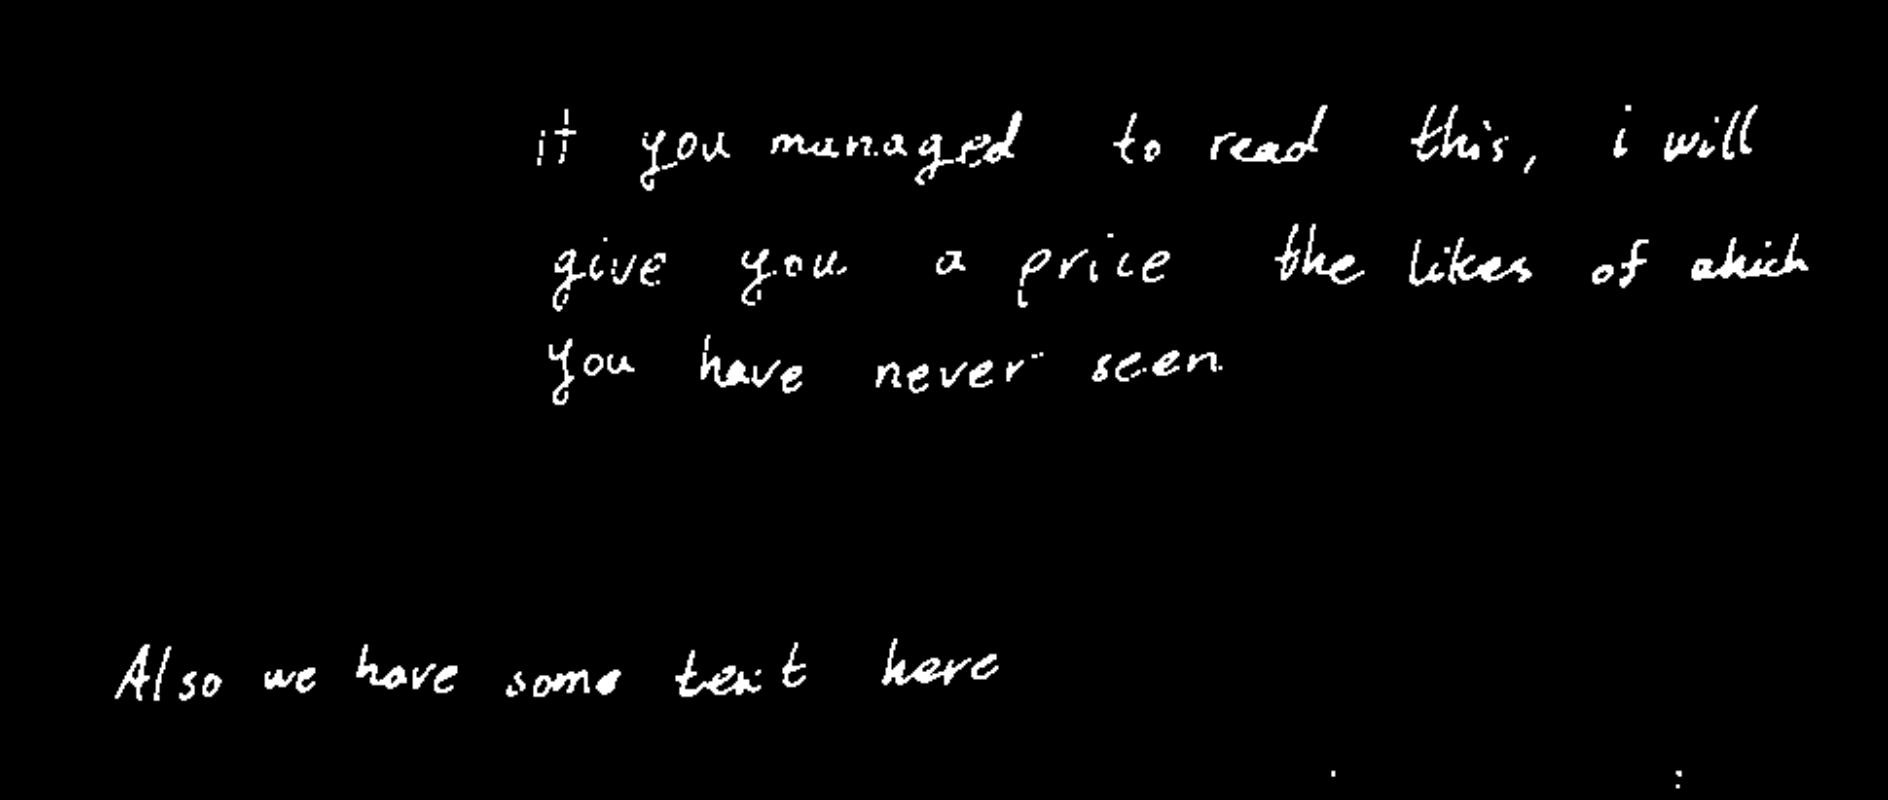 if you managed to read this, i will
give you a price the likes of which
you have never seen
Also we have some text here